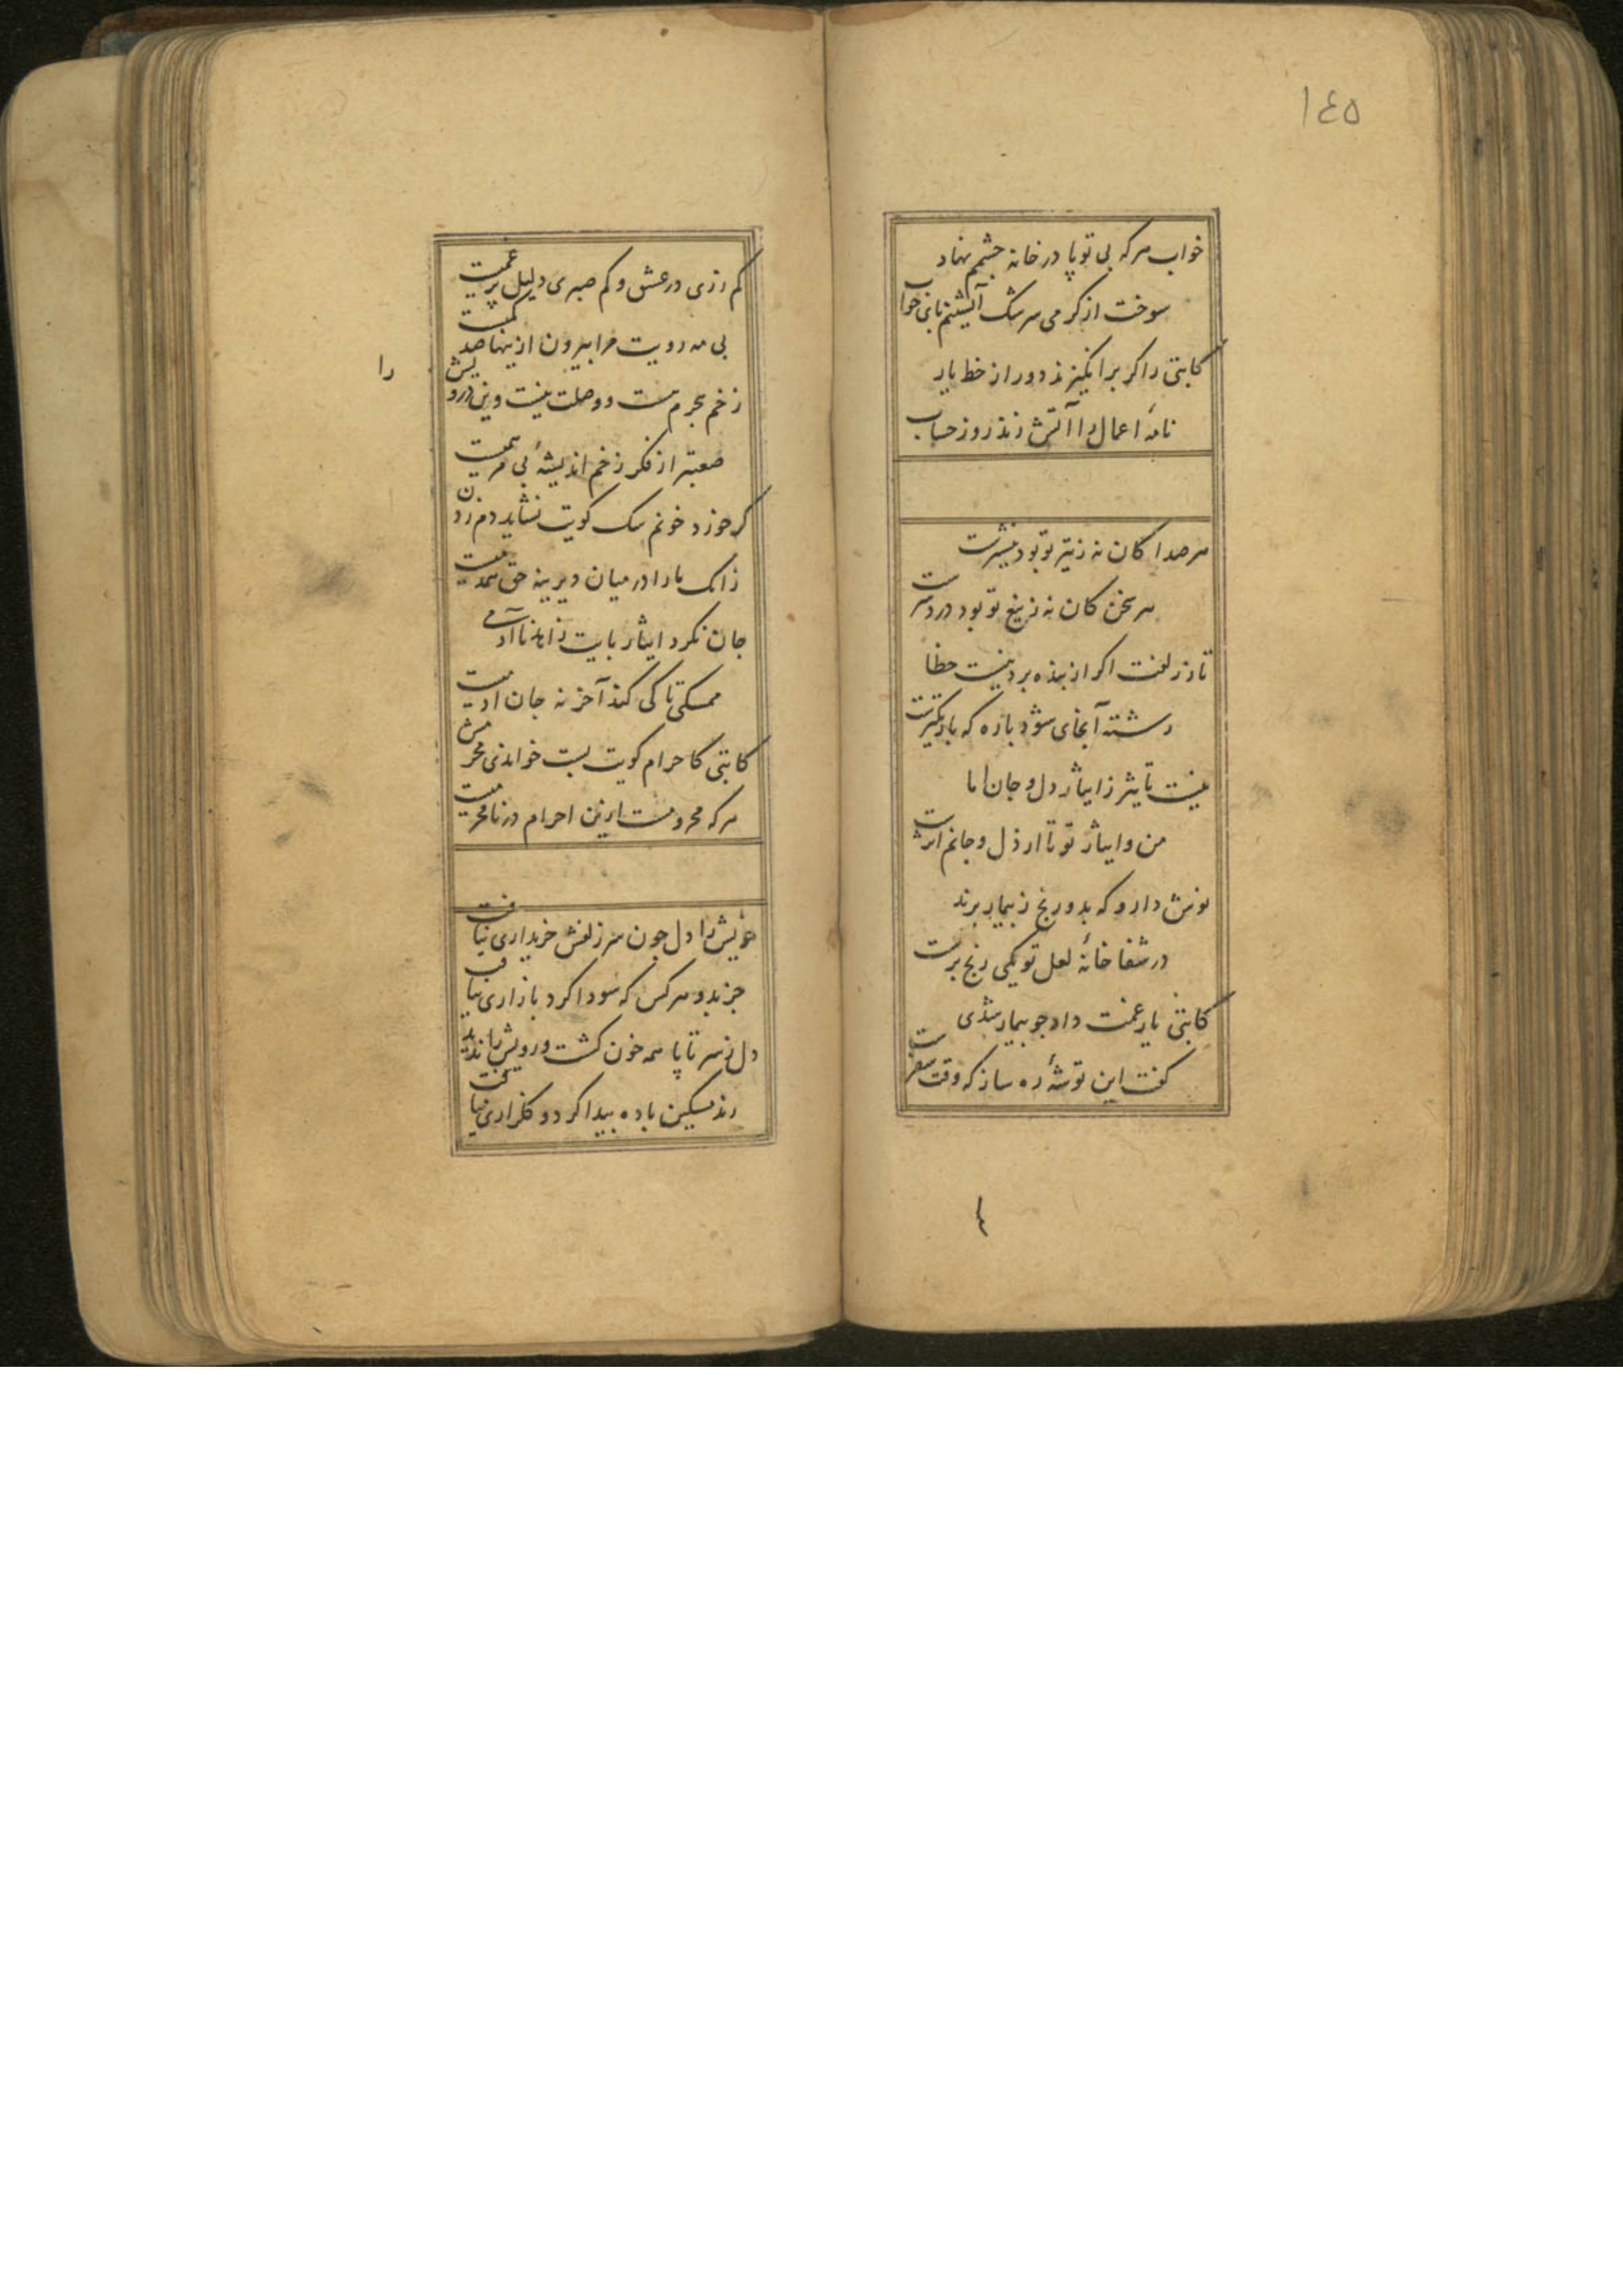 ١٤٥
خواب هر که بی تو پا در خانه چشم نهاد
سوخت از کرمی سرشک آتشینم پای خواب
کاتبی را کر برانکیزند دور از خط یار
نامهٔ اعمال را آتش زند روز حساب
هر صدا کان نه ز تیر تو بود نیشترست
هر سخن کان نه ز تیغ تو بود دردسرست
تار زلفت اکر از بنده برد نیست خطا
رشته آنجای شود پاره که باریکترست
نیست تاثیر ز ایثار دل و جان اما
من و ایثار تو تا از دل و جانم اثرست
نوش دارو که بدو رنج ز بیمار برند
در شفا خانهٔ لعل تو یکی رنج برست
کاتبی یار غمت داد چو بیمار شدی
کفت این توشهٔ ره ساز که وقت سفرست
کم زری در عشق و کم صبری دلیل پر غمیست
بی مه رویت مرا بیرون ازینها صد کمیست
را
زخم هجرم هست و وصلت نیست وین درویش
صعبتر از فکر زخم اندیشهٔ بی مرهمیست
کر خورد خونم سک کویت نشاید دم زدن
زانک ما را در میان دیرینه حق همدمیست
جان نکرد ایثار پایت زاهد ناآدمی
ممسکی تا کی کند آخر نه جان آدمیست
کاتبی کاحرام کویت بست خواندی محرمش
هر که محرومست ازین احرام در نامحرمیست
خویش را دل چون سر زلفش خریداری نیافت
جز بدو هر کس که سودا کرد بازاری نیافت
دل ز سر تا پا همه خون کشت و رویش را ندید
رند مسکین باده پیدا کرد و کلزاری نیافت